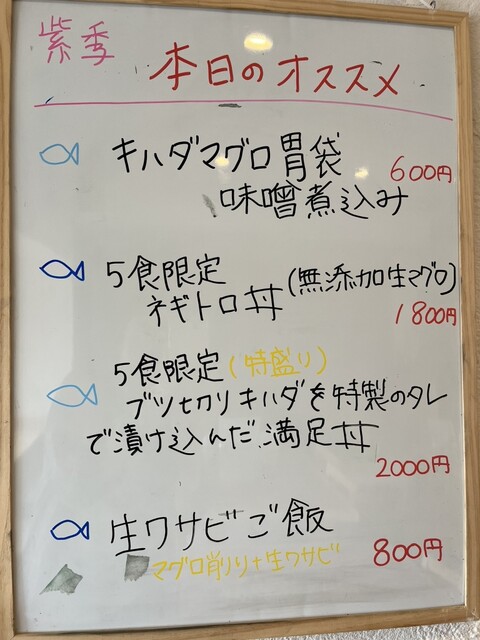 紫季 本日のオススメ
キハダマグロ胃袋
味噌煮込み 600円
5食限定
ネギトロ丼(無添加生マグロ)
1800円
5食限定(特盛り)
ブツ切りキハダを特製のタレ
で漬け込んだ満足丼
2000円
生ワサビご飯
マグロ削りり+生ワサビ 800円